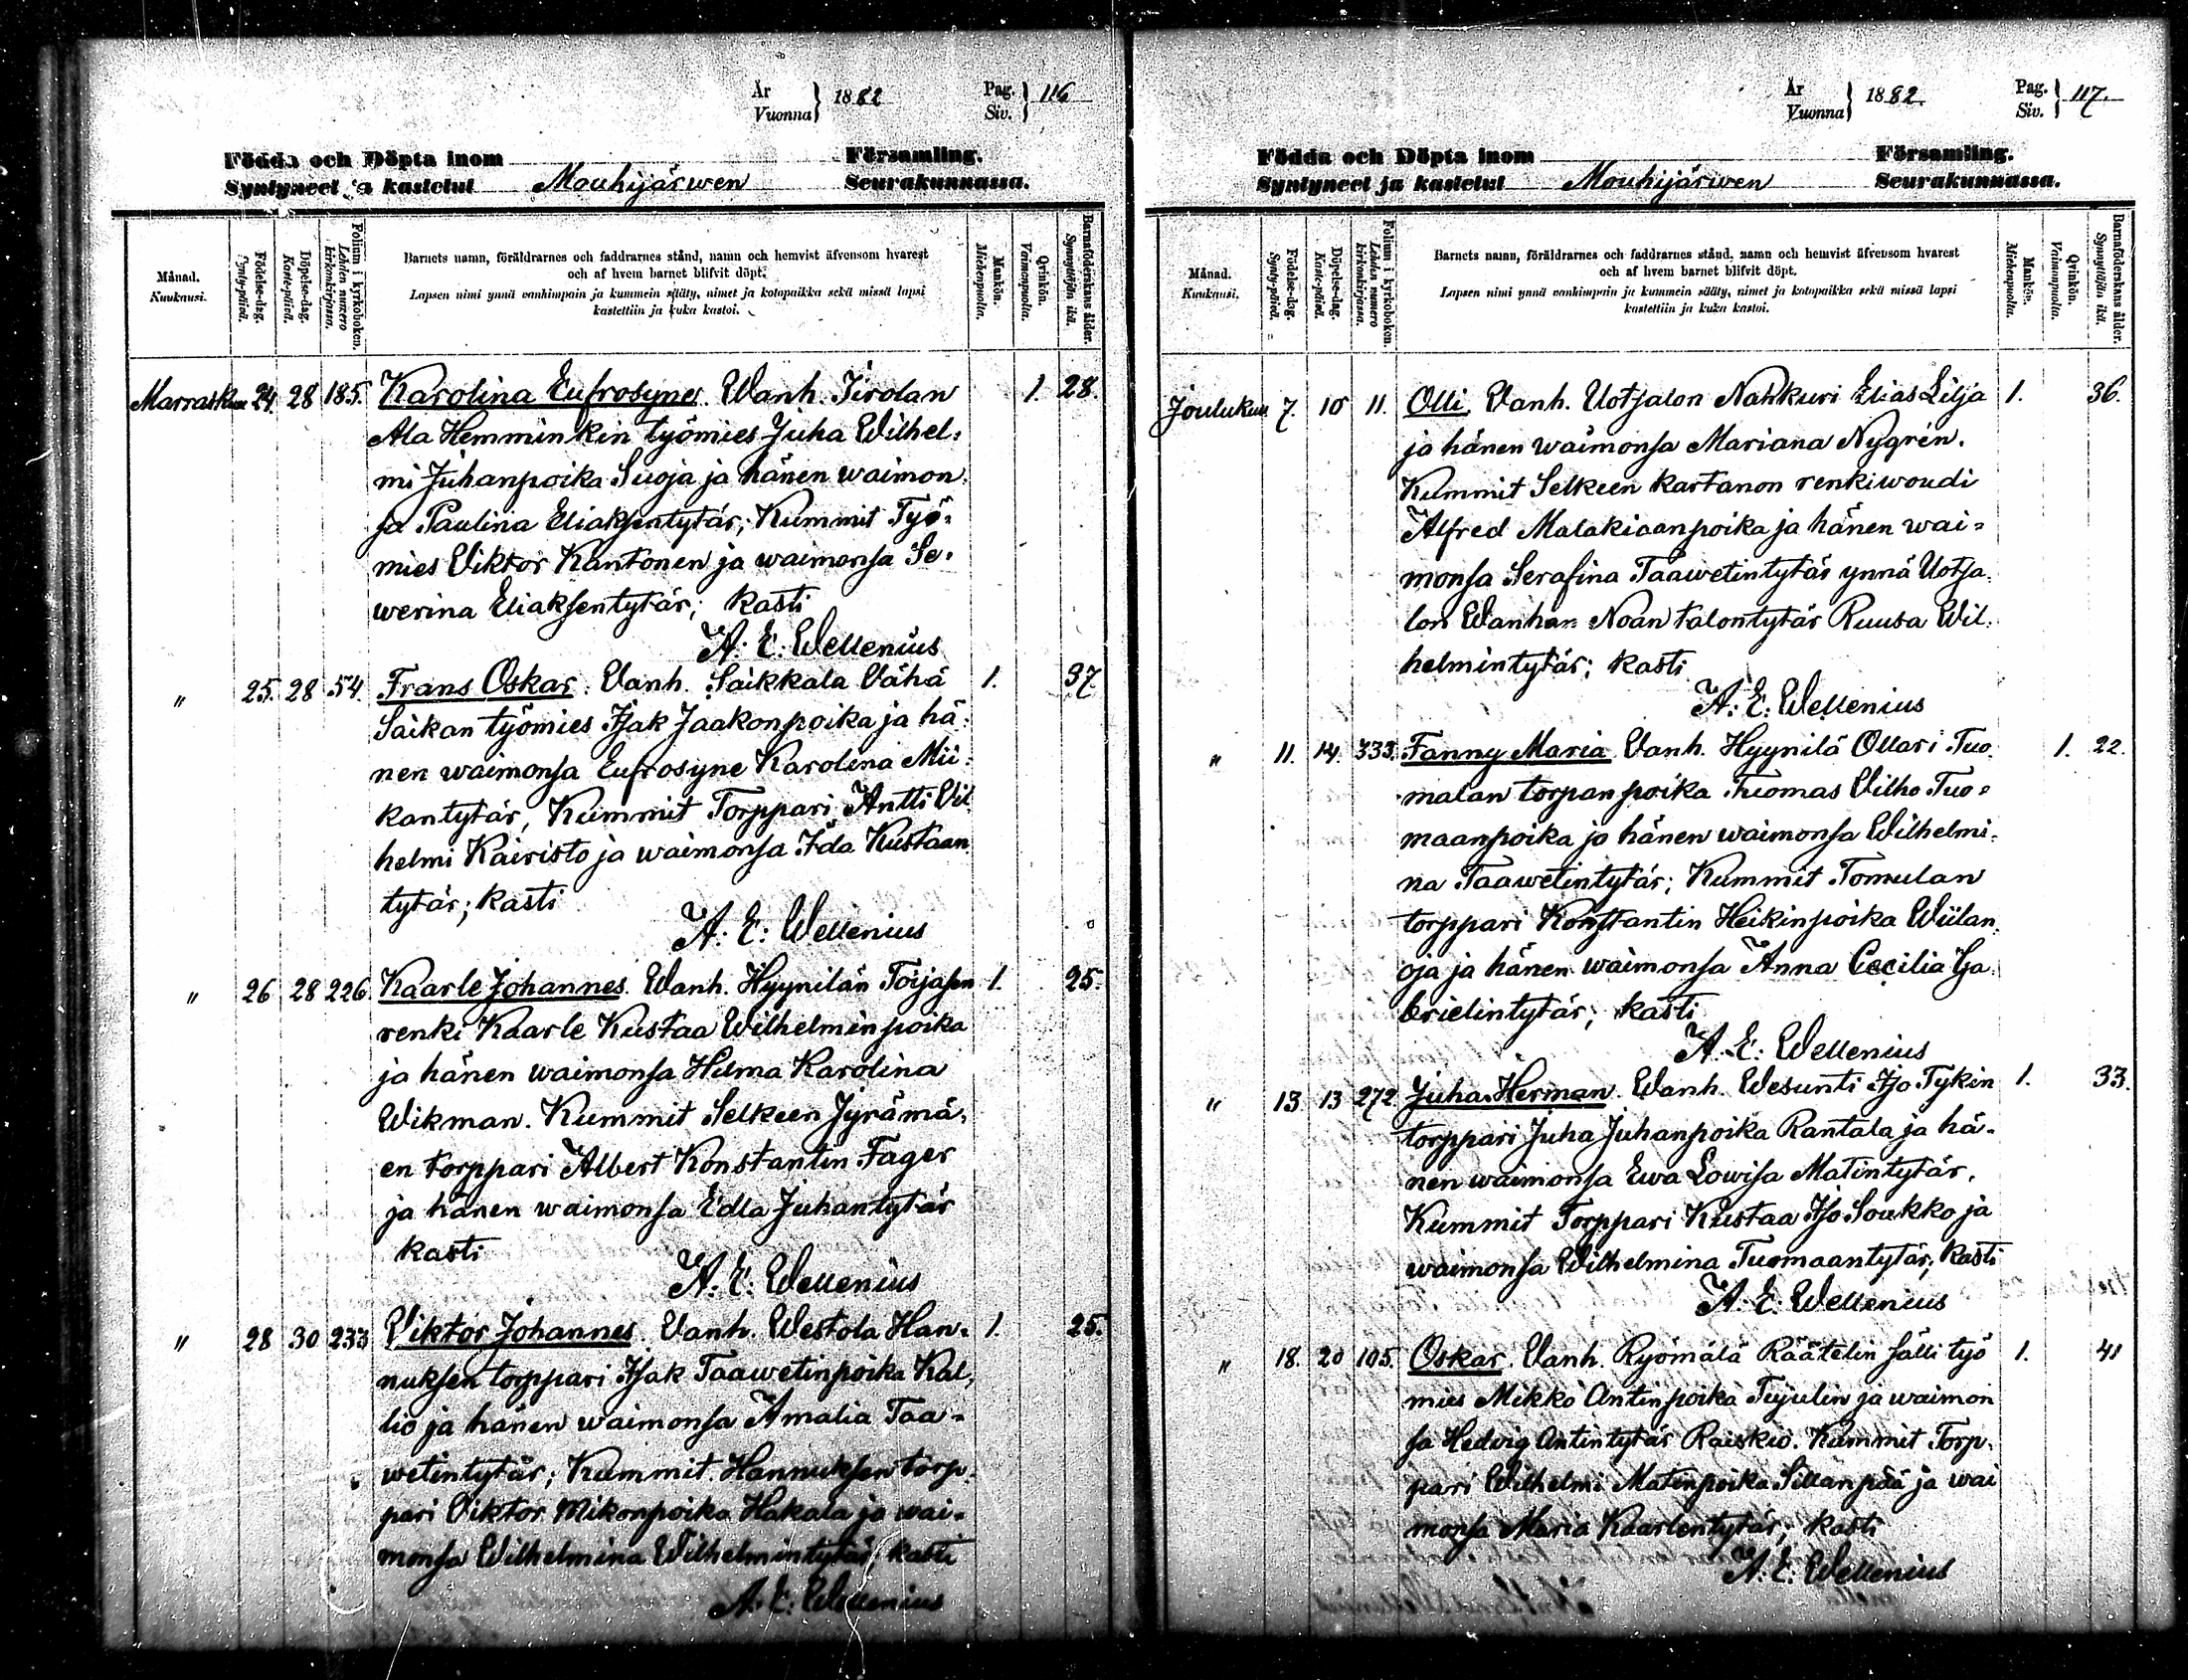 År
Vuonna } 1882
Pag.
Siv. } 116
Födda och Döpta inom Församling.
Syntyneet ja kastetut Mouhijärwen Seurakunnassa.
Månad.
Kuukausi.
Födelse-dag.
Synty-päivä.
Döpelse-dag.
Kaste-päivä.
Folium i kyrkoboken.
Lehden numero kirkonkirjassa.
Barnets namn, föräldrarnes och faddrarnes stånd, namn och hemvist äfvensom hvarest
och af hvem barnet blifvit döpt.
Lapsen nimi ynnä vanhimpain ja kummein sääty, nimet ja kotopaikka sekä missä lapsi
kastettiin ja kuka kastoi.
Mankön.
Miehenpuolia.
Qvinkön.
Vaimonpuolia.
Barnaföderskans ålder.
Synnyttäjän ikä.
Marraskuu 24. 28 185. Karolina Eufrosyne. Wanh. Tirolan 1. 28.
Ala Hemminkin työmies Juha Wilhel-
mi Juhanpoika Suoja ja hänen waimon-
sa Paulina Eliaksentytär; Kummit Työ-
mies Viktor Kantonen ja waimonsa Se-
werina Eliaksentytär; kasti
A. E. Wellenius
" 25. 28 54. Frans Oskar. Vanh. Saikkala Vähä 1. 37.
Saikan työmies Isak Jaakonpoika ja hä-
nen waimonsa Eufrosyne Karolina Mii-
kantytär, Kummit Torppari Antti Vil-
helmi Kairisto ja waimonsa Ida Kustaan
tytär; kasti
A. E. Wellenius
" 26 28 226. Kaarle Johannes. Wanh. Hyynilän Toijasen 1. 25.
renki Kaarle Kustaa Wilhelminpoika
ja hänen waimonsa Hilma Karolina
Wikman. Kummit Selkeen Jyrämä-
en torppari Albert Konstantin Fager
ja hänen waimonsa Edla Juhantytär
kasti
A. E. Wellenius
" 28 30 233 Viktor Johannes. Vanh. Westola Han- 1. 25.
nuksen torppari Isak Taawetinpoika Kal-
lio ja hänen waimonsa Amalia Taa-
wetintytär; Kummit Hannuksen torp-
pari Viktor Mikonpoika Hakala ja wai-
monsa Wilhelmina Wilhelmintytär; kasti
A. E. Wellenius
År
Vuonna } 1882.
Pag.
Siv. } 117.
Födda och Döpta inom Församling.
Syntyneet ja kastetut Mouhijärwen Seurakunnassa.
Månad.
Kuukausi.
Födelse-dag.
Synty-päivä.
Döpelse-dag.
Kaste-päivä.
Folium i kyrkoboken.
Lehden numero kirkonkirjassa.
Barnets namn, föräldrarnes och faddrarnes stånd, namn och hemvist äfvensom hvarest
och af hvem barnet blifvit döpt.
Lapsen nimi ynnä vanhimpain ja kummein sääty, nimet ja kotopaikka sekä missä lapsi
kastettiin ja kuka kastoi.
Mankön.
Miehenpuolia.
Qvinkön.
Vaimonpuolia.
Barnaföderskans ålder.
Synnyttäjän ikä.
Joulukuu 7. 10 11. Olli. Vanh. Uotsalon Nahkuri Elias Lilja 1. 36.
ja hänen waimonsa Mariana Nygrén.
Kummit Selkeen kartanon renkiwoudi
Alfred Malakiaanpoika ja hänen wai-
monsa Serafina Taawetintytär ynnä Uotsa-
lon Wanhan Noan talontytär Ruusa Wil-
helmintytär; kasti
A. E. Wellenius
" 11. 14. 333. Fanny Maria. Vanh. Hyynilä Ollari Tuo- 1. 22.
malan torpan poika Tuomas Vilho Tuo-
maanpoika ja hänen waimonsa Wilhelmi-
na Taawetintytär; Kummit Tomulan
torppari Konstantin Heikinpoika Wiilan-
oja ja hänen waimonsa Anna Cecilia Ga-
brielintytär; kasti
A. E. Wellenius
" 13. 13 272 Juha Herman. Wanh. Wesunti Iso Tykin 1. 33.
torppari Juha Juhanpoika Rantala ja hä-
nen waimonsa Ewa Lowisa Matintytär.
Kummit Torppari Kustaa Iso Soukko ja
waimonsa Wilhelmina Tuomaantytär; kasti
A. E. Wellenius
" 18. 20 105. Oskar. Vanh. Ryömälä Räätelin sälli työ 1. 41
mies Mikko Antinpoika Tujulin ja waimon
sa Hedvig Antintytär Raiskio. Kummit Torp-
pari Wilhelmi Matinpoika Sillanpää ja wai
monsa Maria Kaarlentytär; kasti
A. E. Wellenius